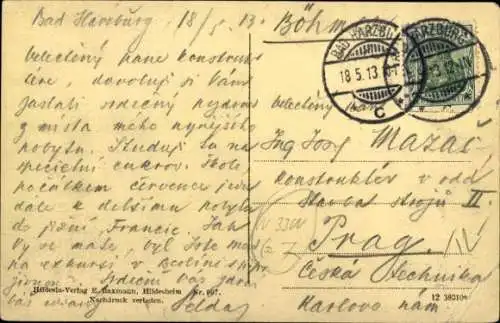 Bad Harzburg 18/5 13.
Velectěný pane konstruk-
tére, dovoluji si Vám
zaslati srdečný pozdrav
z místa mého nynějšího
pobytu. Studuji tu na
specielní cukrov. škole
počátkem července jedu
dále k delšímu pobytu
do jižní Francie. Jak
Vy se máte, byl jste
na exkursi v Berlíně
Srdečně Vás zdraví
Hildesia-Verlag E. Baxmann, Hildesheim Nr. 907.
Nachdruck verboten.
Böhmen
BAD HARZBURG
18.5.13
C
HARZBURG
Velectěný pan
Ing Josef Mazač
konstruktér v odd.
stavba strojů II.
Prag. IV
Česká technika
Karlovo nám.
12 38310